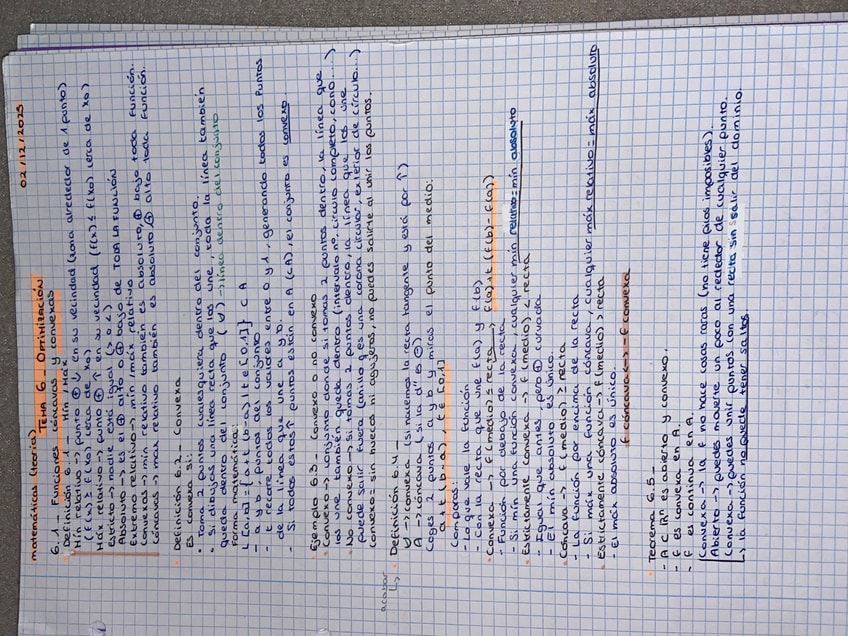 matemáticas (teoría)
02/12/2025
TEMA 6 - OPTIMIZACIÓN
6.1 - Funciones cóncavas y convexas
• Definición 6.1 - Mín y Máx
Mín relativo -> punto ⊕ ↓ en su vecindad (zona alrededor de 1 punto)
(f(x) ≥ f(x0) cerca de x0)
Máx relativo -> punto ⊕ ↑ en su vecindad (f(x) ≤ f(x0) cerca de x0)
Estricto -> nadie está igual (> o <)
Absoluto -> es el ⊕ alto o ⊕ bajo de TODA LA FUNCIÓN
Extremo relativo -> mín/máx relativo
Convexas -> mín relativo también es absoluto, ⊕ bajo toda función.
Cóncavas -> máx relativo también es absoluto, ⊕ alto toda función.
• Definición 6.2 - Convexa
Es convexa si:
• Toma 2 puntos cualesquiera dentro del conjunto.
• Si dibujas una línea recta que los une, toda la línea también
queda dentro del conjunto (∀) -> línea dentro del conjunto
Forma matemática:
L [a,b] = {a + t (b-a) | t ∈ [0,1]} ⊂ A
- a y b, puntos del conjunto
- t recorre todos los valores entre 0 y 1, generando todos los puntos
de la línea que une a y b.
- Si todos estos ↑ puntos están en A (⊂A), el conjunto es convexo
• Ejemplo 6.3 - Convexo o no convexo
• Convexo -> conjunto donde si tomas 2 puntos dentro, la línea que
los une también queda dentro (intervalo nº, círculo completo, cono...)
• No convexo -> si tomas 2 puntos dentro, la línea que los une
puede salir fuera (anillo q es una corona circular, exterior de círculo...)
Convexo = sin huecos ni agujeros, no puedes salirte al unir los puntos.
acabar
↳
• Definición 6.4 -
∀ -> convexa (si hacemos la recta tangente y está por ↑)
A -> cóncava (si la d'' es ⊖)
Coges 2 puntos a y b y miras el punto del medio:
a + t (b-a), t ∈ [0,1]
Comparas:
- Lo que vale la función
- Con la recta que une f(a) y f(b)
• Convexa -> f(medio) ≤ recta -> f(a) + t (f(b) - f(a))
- Función por debajo de la recta
- Si mín una función convexa, cualquier mín relativo = mín absoluto
• Estrictamente convexa -> f (medio) < recta
- Igual que antes, pero ⊕ curvada
- El mín absoluto es único.
• Cóncava -> f (medio) ≥ recta
- La función por encima de la recta
- Si máx una función cóncava, cualquier máx relativo = máx absoluto
• Estrictamente cóncava -> f(medio) > recta
- El máx absoluto es único.
f cóncava <-> -f convexa
• Teorema 6.5 -
- A ⊂ ℝⁿ es abierto y convexo.
- f es convexa en A.
- f es continua en A.
Convexa -> la f no hace cosas raras (no tiene picos imposibles).
Abierto -> puedes moverte un poco alrededor de cualquier punto.
Convexa -> puedes unir puntos con una recta sin salir del dominio.
↳ la función no puede tener saltos